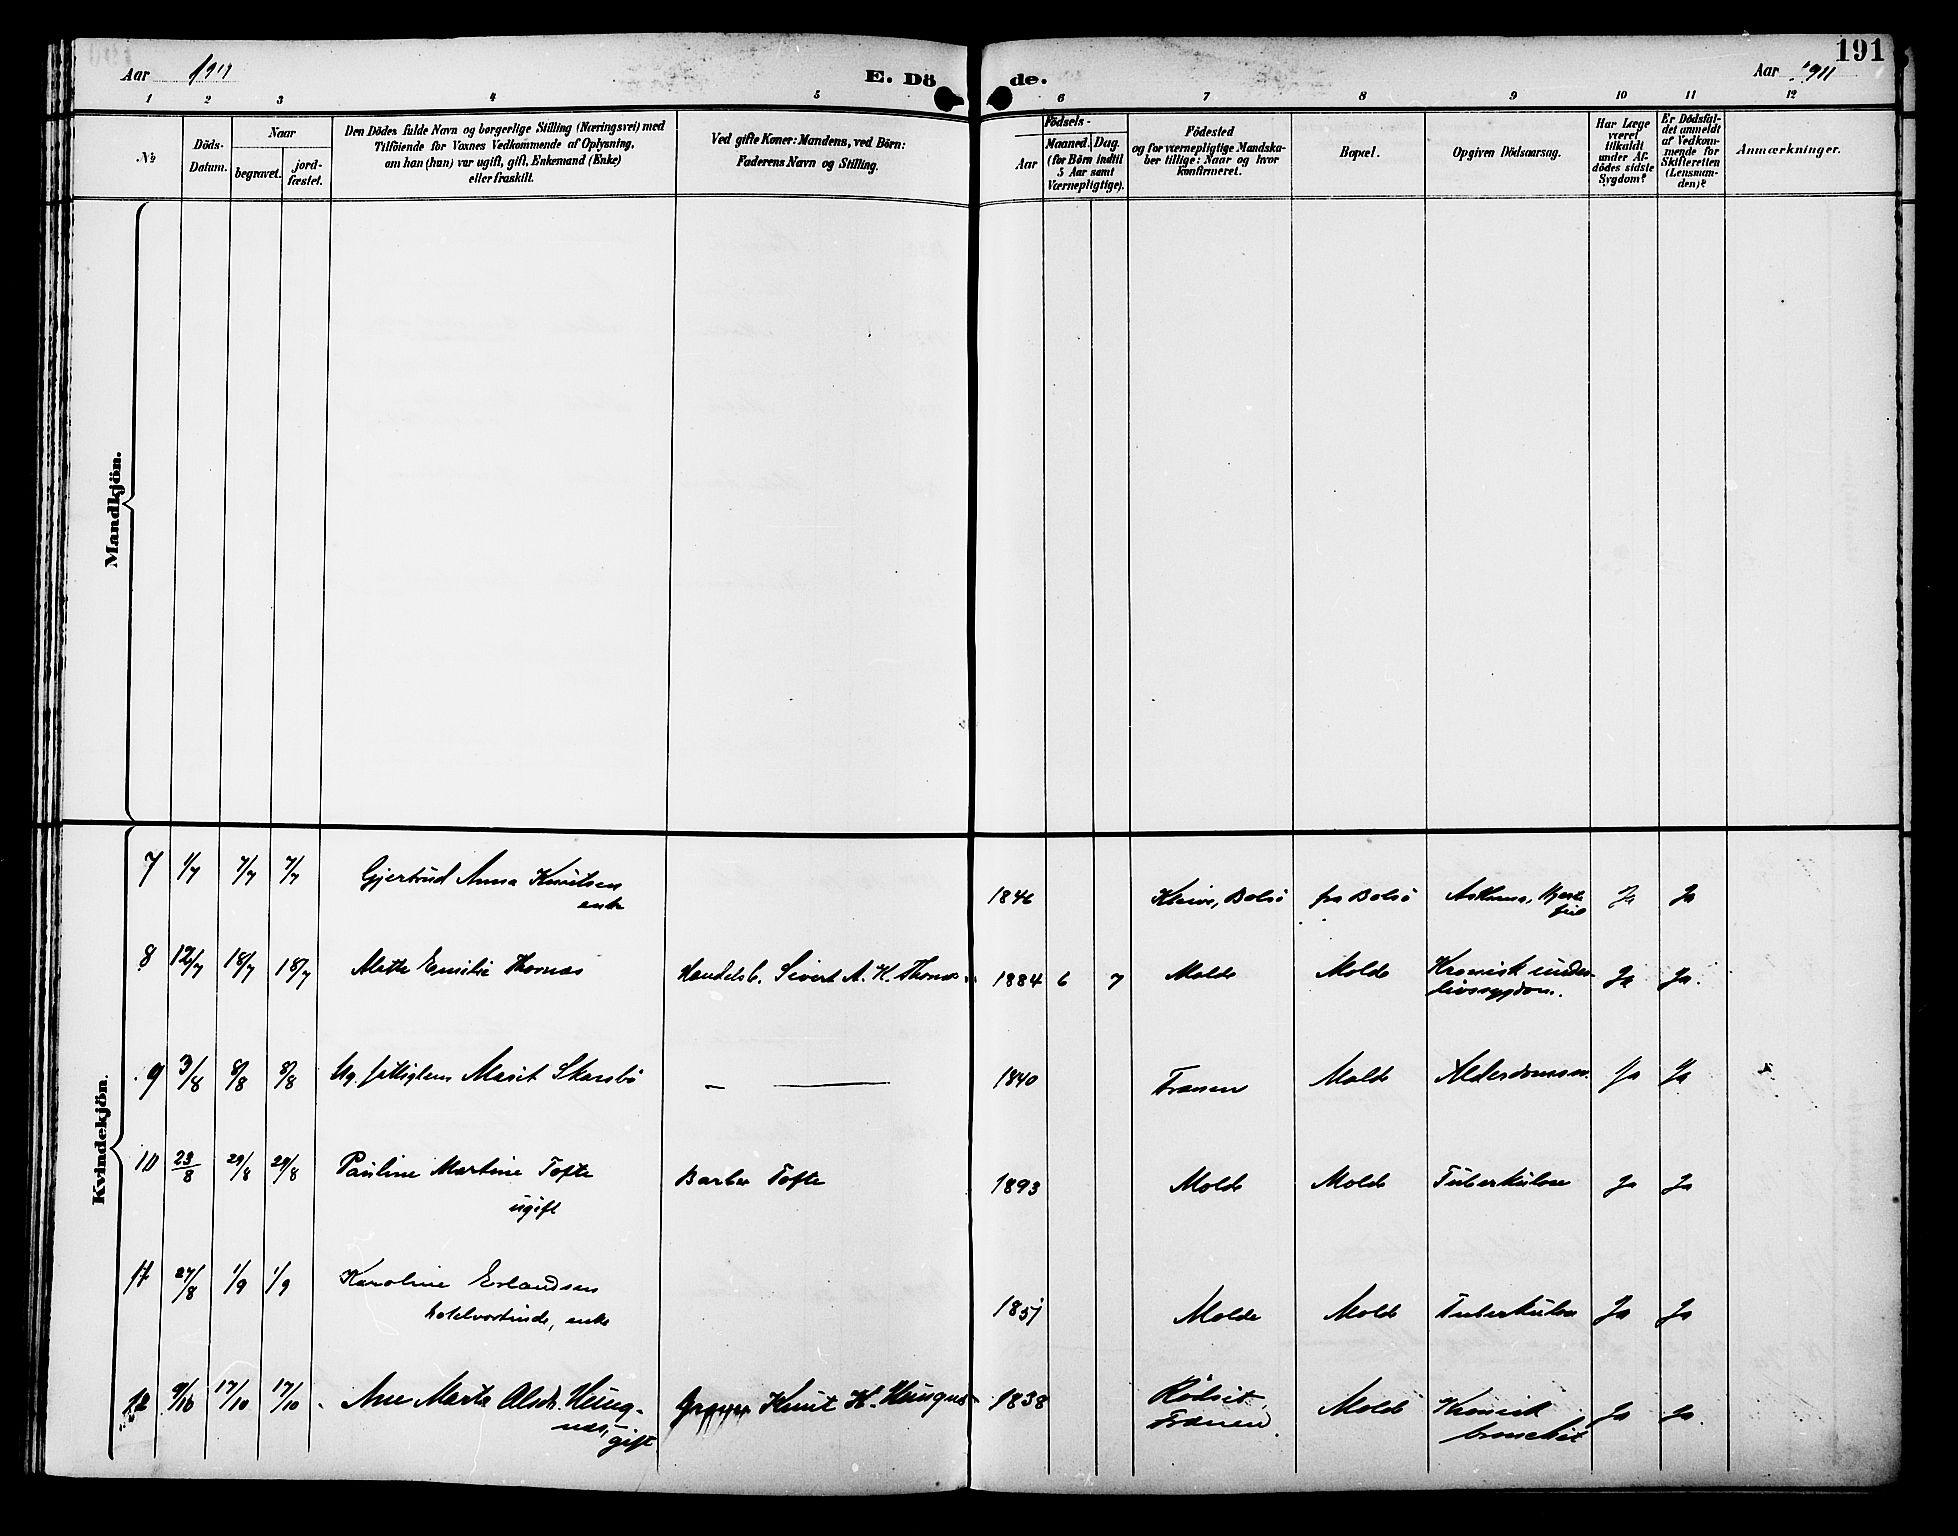 191
Aar 1911
E. Dö
de.
Aar 1911
1 2 3 4 5 6 7 8 9 10 11 12
№
Döds-
Datum.
Naar
begravet.
jord-
fæstet.
Den Dödes fulde Navn og borgerlige Stilling (Næringsvei) med
Tilföiende for Voxnes Vedkommende af Oplysning,
om han (hun) var ugift, gift, Enkemand (Enke)
eller fraskilt.
Ved gifte Koner: Mandens, ved Börn:
Faderens Navn og Stilling.
Födsels-
Aar
Maaned. Dag.
(for Börn indtil
5 Aar samt
Værnepligtige).
Födested
og for værnepligtige Mandska-
ber tillige: Naar og hvor
konfirmeret.
Bopæl.
Opgiven Dödsaarsag.
Har Læge
været
tilkaldt
under Af-
dödes sidste
Sygdom?
Er Dödsfal-
det anmeldt
af Vedkom-
mende for
Skifteretten
(Lensman-
den)?
Anmærkninger.
Mandkjön.
Kvindekjön.
7 1/7 7/7 7/7 Gjertrud Anna Knutsen
enke
1846 Bolsö fra Bolsö Asthma, Hjerte
feil Ja Ja
8 12/7 18/7 18/7 Mette Emilie Thornæs Handelsb. Sivert A. K. Thornæs 1884 6 7 Molde Molde Kronisk under-
livssygdom. Ja Ja.
9 3/8 8/8 8/8 Marit Skarsbö — 1840 Frænen Molde Alderdomssv. Ja Ja
10 23/8 29/8 29/8 Pauline Martine Tofte
ugift
Barber Tofte 1893 Molde Molde Tuberkulose Ja Ja
11 27/8 1/9 1/9 Karoline Erlandsen
hotelvertinde, enke
1851 Molde Molde Tuberkulose Ja Ja
12 9/10 17/10 17/10 Ane Marta Heing-
næs,
gift
Knut H. 1838
Frænen Molde Kronisk
bronchit Ja Ja.